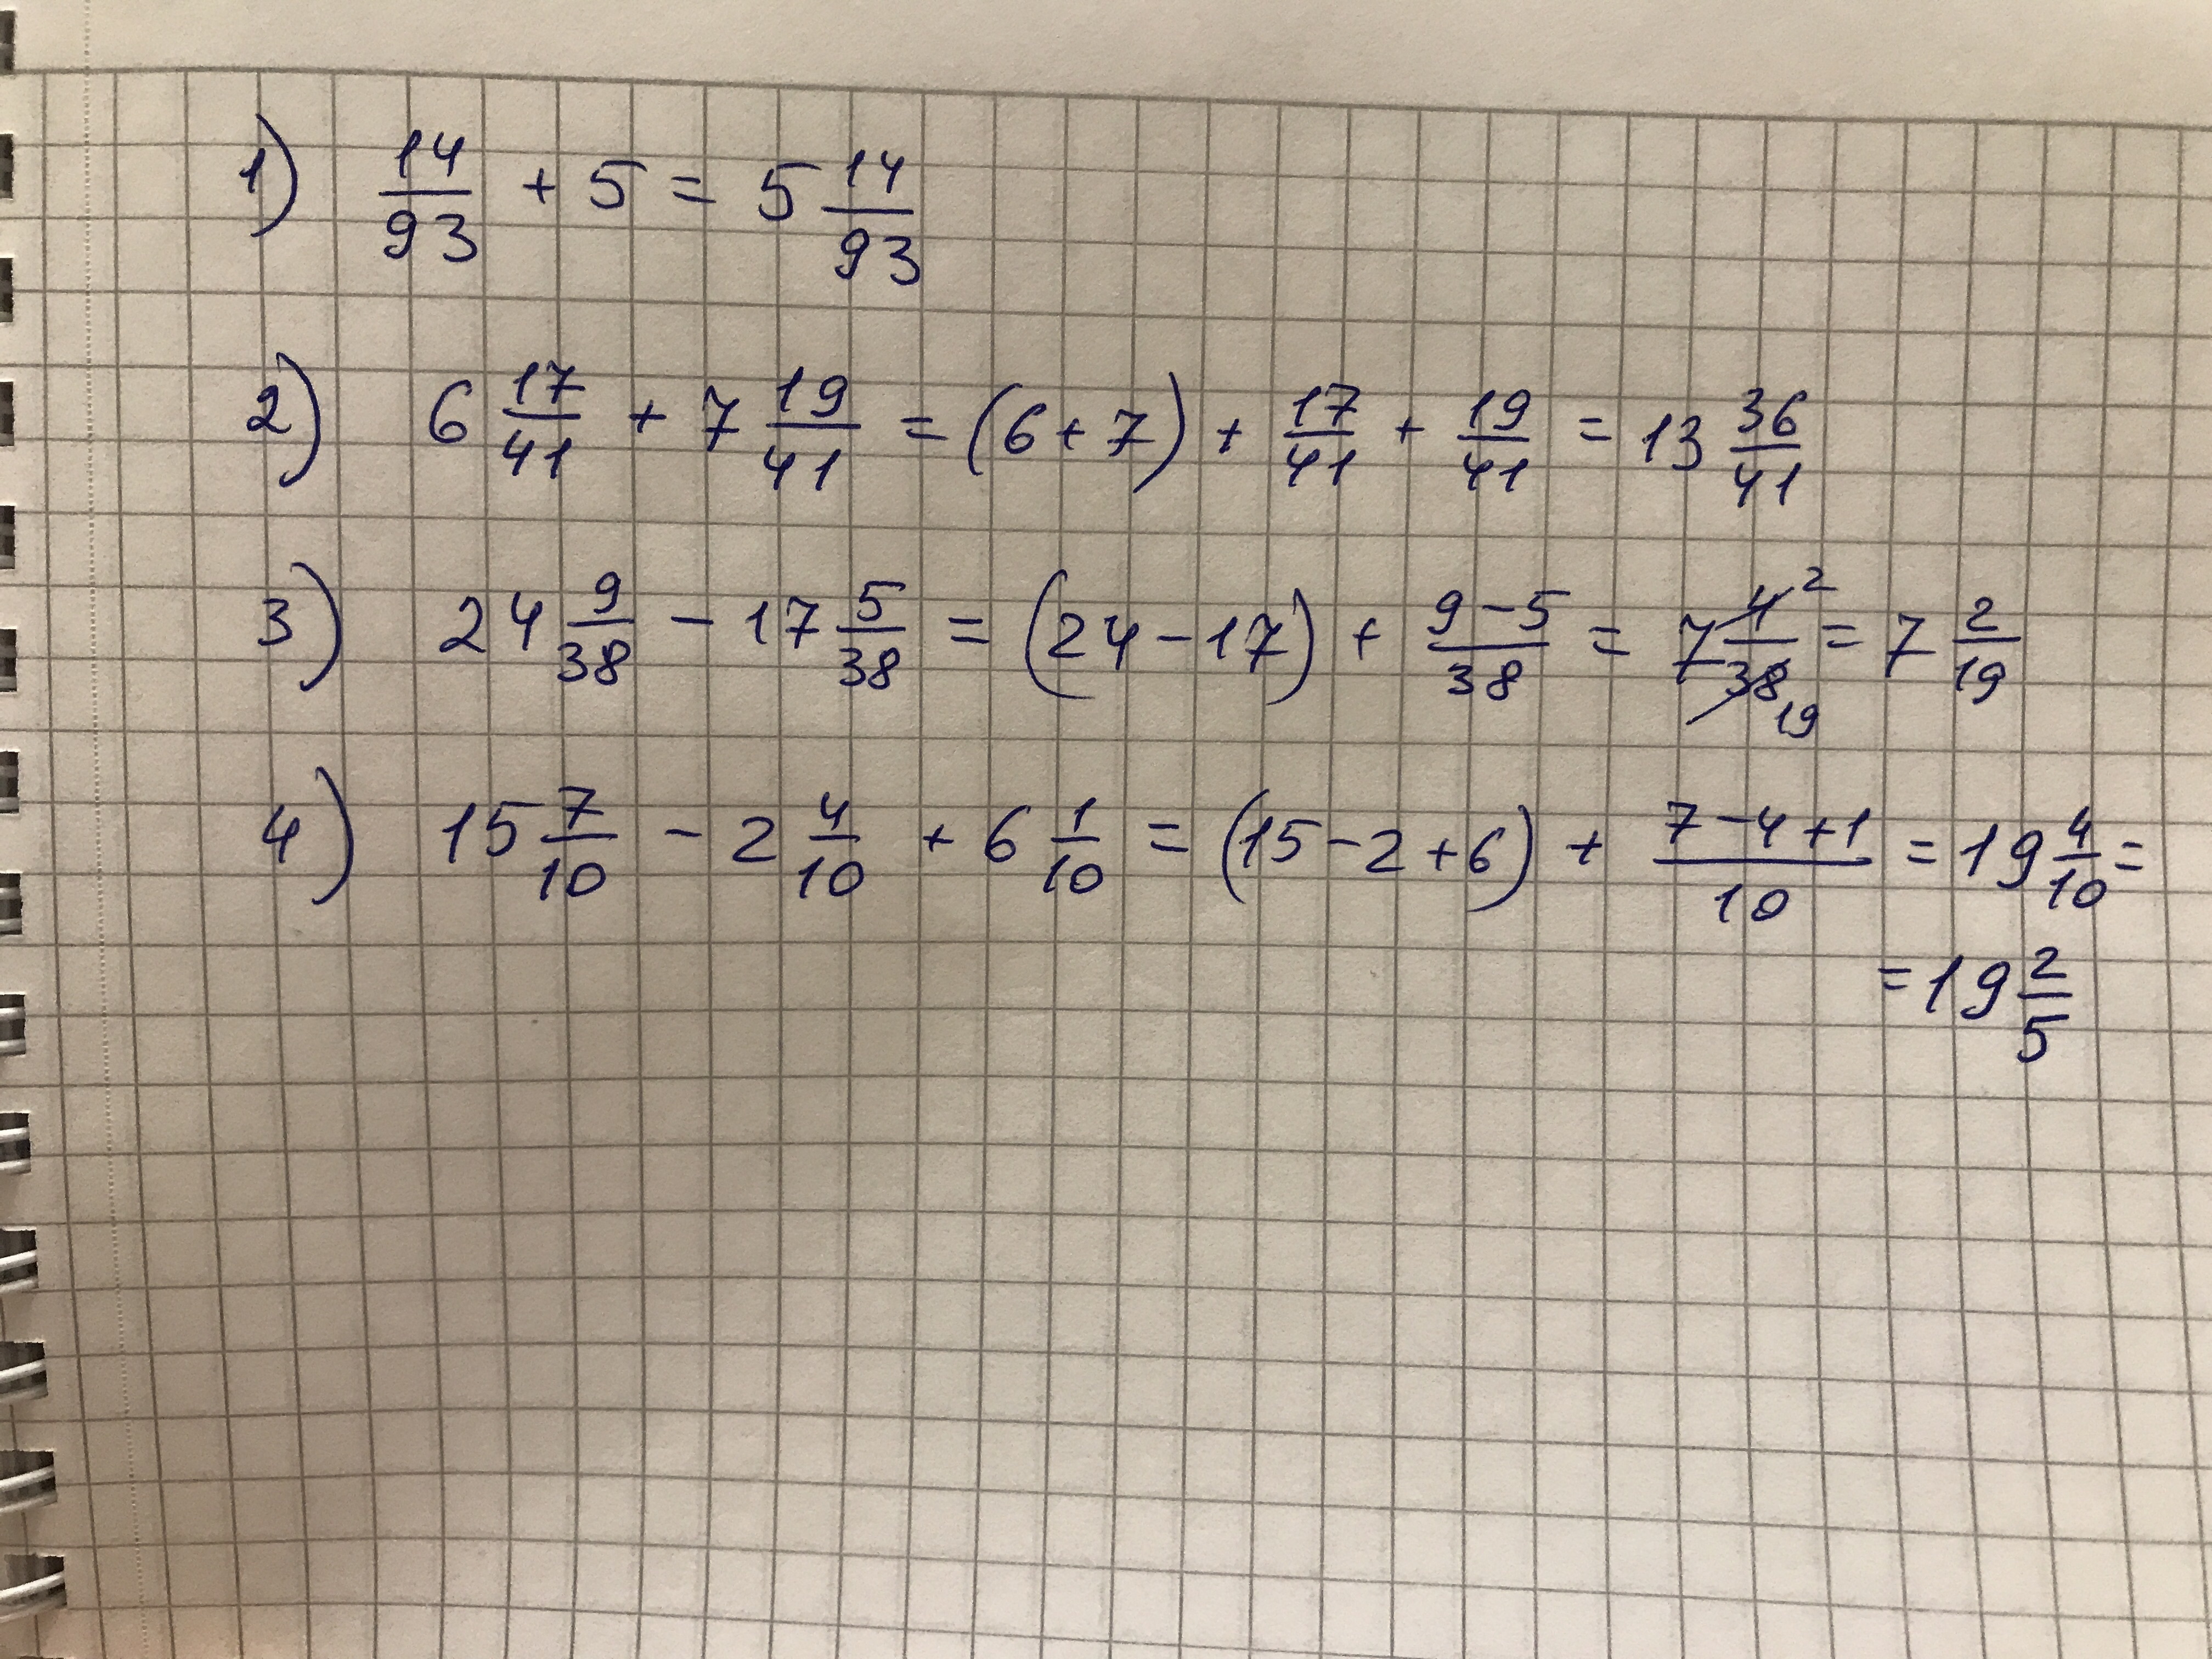 1) 14/93 + 5 = 5 14/93
2) 6 17/41 + 7 19/41 = (6+7) + 17/41 + 19/41 = 13 36/41
3) 24 9/38 - 17 5/38 = (24-17) + (9-5)/38 = 7 4/38 2 19 = 7 2/19
4) 15 7/10 - 2 4/10 + 6 1/10 = (15-2+6) + (7-4+1)/10 = 19 4/10 =
= 19 2/5